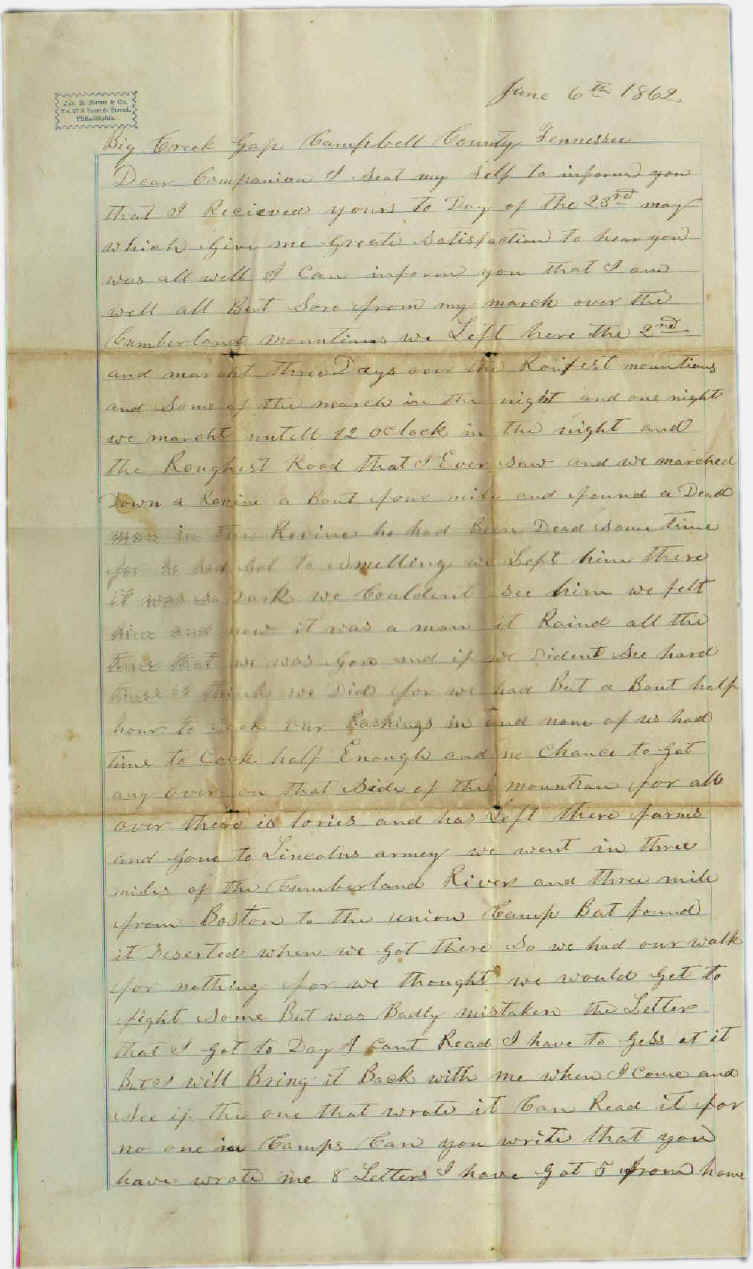 June 6th 1862.
Philadelphia.
Big Creek Gap Campbell County Tennessee
Dear Companion I Seat my Self to inform you
that I Recieved yours to Day of the 23rd may
which Give me Greate Satisfaction to hear you
was all well I Can inform you that I am
well all But Sore from my march over the
Cumberland mountians we Left here the 2nd
and marcht three Days over the mountians
and Some of the march in the night and one night
we marcht untill 12 oclock in the night and
the Roughest Road that I Ever Saw and we marched
Down a Revine a Bout four mile and found a Dead
man in the Revine he had Been Dead Some time
for he had Got to Smelling we Left him there
it was so Dark we Couldent See him we felt
and it was a man it Raind all the
time that we was Gon and if we Dident See hard
times I think we Did for we had But a Bout half
hour to Cook our in and none of us had
time to Cook half Enough and no chance to Get
any over on that Side of the mountian for all
over there is tories and has Left there farms
and Gone to Lincolns armey we went in three
miles of the Cumberland River and three mile
from Boston to the union Camp But found
it Deserted when we Got there So we had our walk
for nothing for we thought we would Get to
fight Some But was Badly mistaken the Letter
that I Got to Day I Cant Read I have to Gess at it
But I will Bring it Back with me when I Come and
See if the one that wrote it Can Read it for
no one in Camps Can you write that you
have wrote me 8 Letters I have Got 5 from home